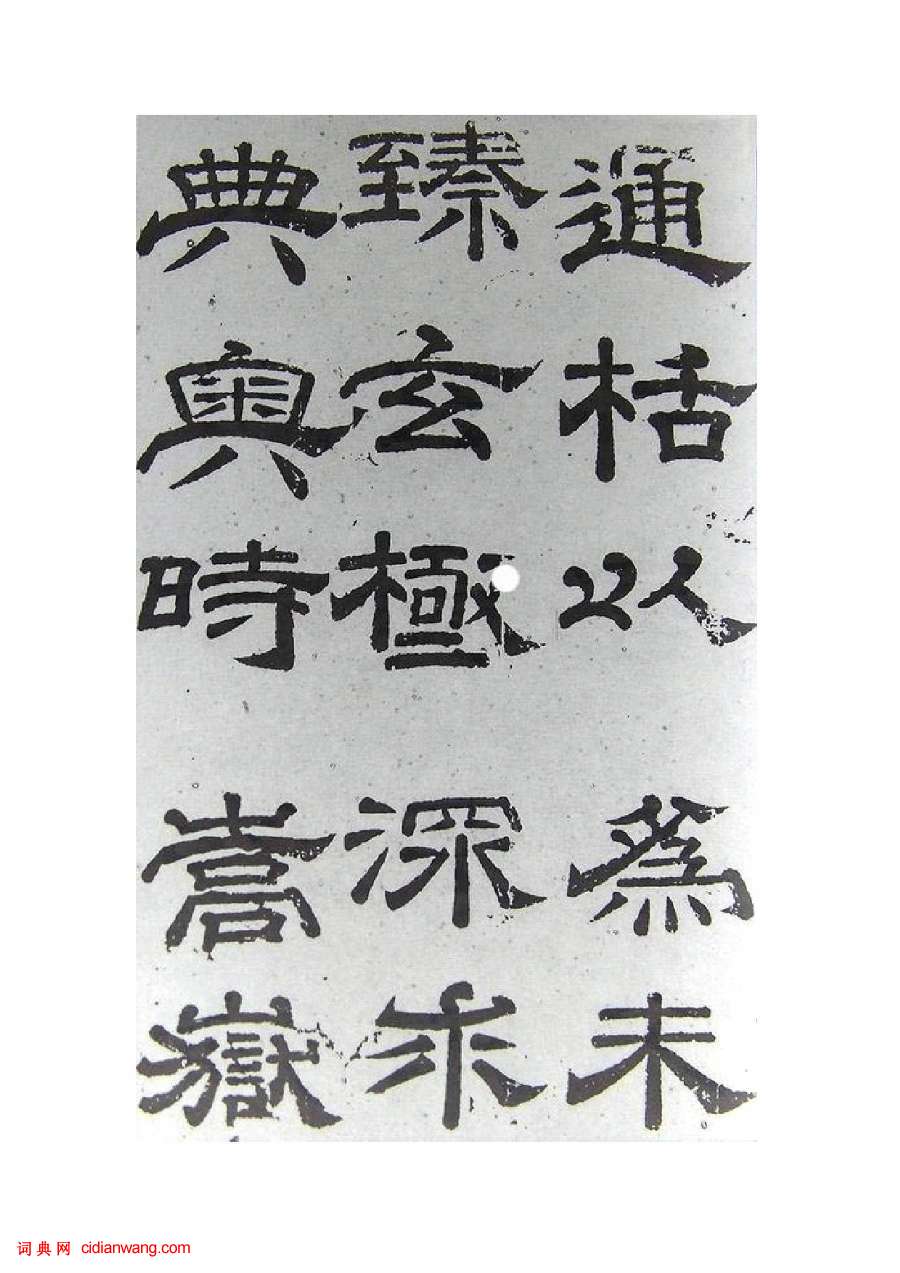 通栝以為未
臻玄極深求
典奧時嵩嶽
词典网 cidianwang.com